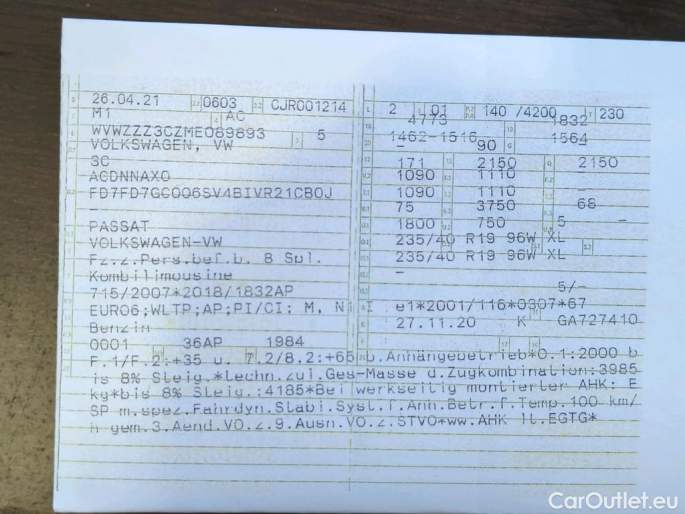 26.04.21 0603 CJR001214
M1 AC
WVWZZZ3CZME089893 5
VOLKSWAGEN, VW
3C
ACDNNAX0
FD7FD7GC006SV4BIVR21CB0J
—
PASSAT
VOLKSWAGEN-VW
Fz.z.Pers.bef.b. 8 Spl.
Kombilimousine
715/2007*2018/1832AP
EURO6;WLTP;AP;PI/CI; M, N1 I
Benzin
0001 36AP 1984
L 2 9 01 140 /4200 230
4773 1832
1462-1516 1564
– 90
171 2150 2150
1090 1110 –
1090 1110 –
75 3750 68
1800 750 5 –
235/40 R19 96W XL
235/40 R19 96W XL
–
5/–
e1*2001/116*0307*67
27.11.20 K GA727410
F.1/F.2:+35 u. 7.2/8.2:+65 b.Anhängebetrieb*O.1:2000 b
is 8% Steig.*Techn.zul.Ges-Masse d.Zugkombination:3985
kg*bis 8% Steig.:4185*Bei werkseitig montierter AHK: E
SP m.spez.Fahrdyn.Stabi.Syst.f.Anh.Betr.f.Temp.100 km/
h gem.3.Aend.VO.z.9.Ausn.VO.z.STVO*ww.AHK lt.EGTG*
CarOutlet.eu